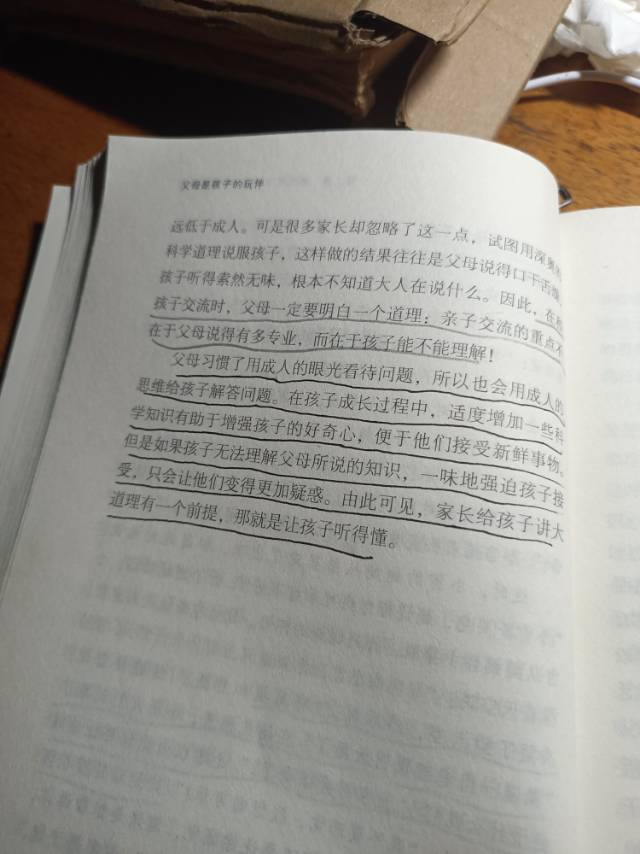 父母是孩子的玩伴
远低于成人。可是很多家长却忽略了这一点，试图用深奥的
科学道理说服孩子，这样做的结果往往是父母说得口干舌燥，
孩子听得索然无味，根本不知道大人在说什么。因此，在和
孩子交流时，父母一定要明白一个道理：亲子交流的重点不
在于父母说得有多专业，而在于孩子能不能理解！
父母习惯了用成人的眼光看待问题，所以也会用成人的
思维给孩子解答问题。在孩子成长过程中，适度增加一些科
学知识有助于增强孩子的好奇心，便于他们接受新鲜事物。
但是如果孩子无法理解父母所说的知识，一味地强迫孩子接
受，只会让他们变得更加疑惑。由此可见，家长给孩子讲大
道理有一个前提，那就是让孩子听得懂。